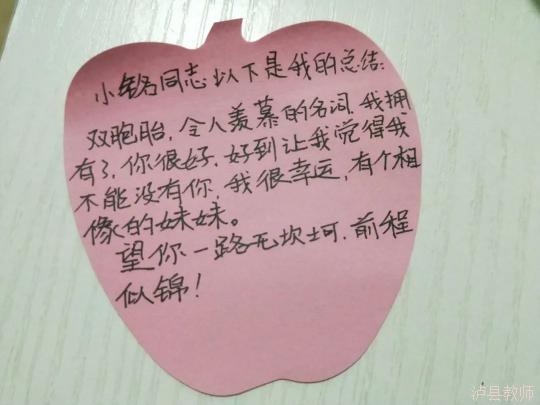 小铭同志以下是我的总结:
双胞胎，令人羡慕的名词.我拥
有了，你很好.好到让我觉得我
不能没有你.我很幸运，有个相
像的妹妹。
望你一路无坎坷.前程
似锦!
泸县教师